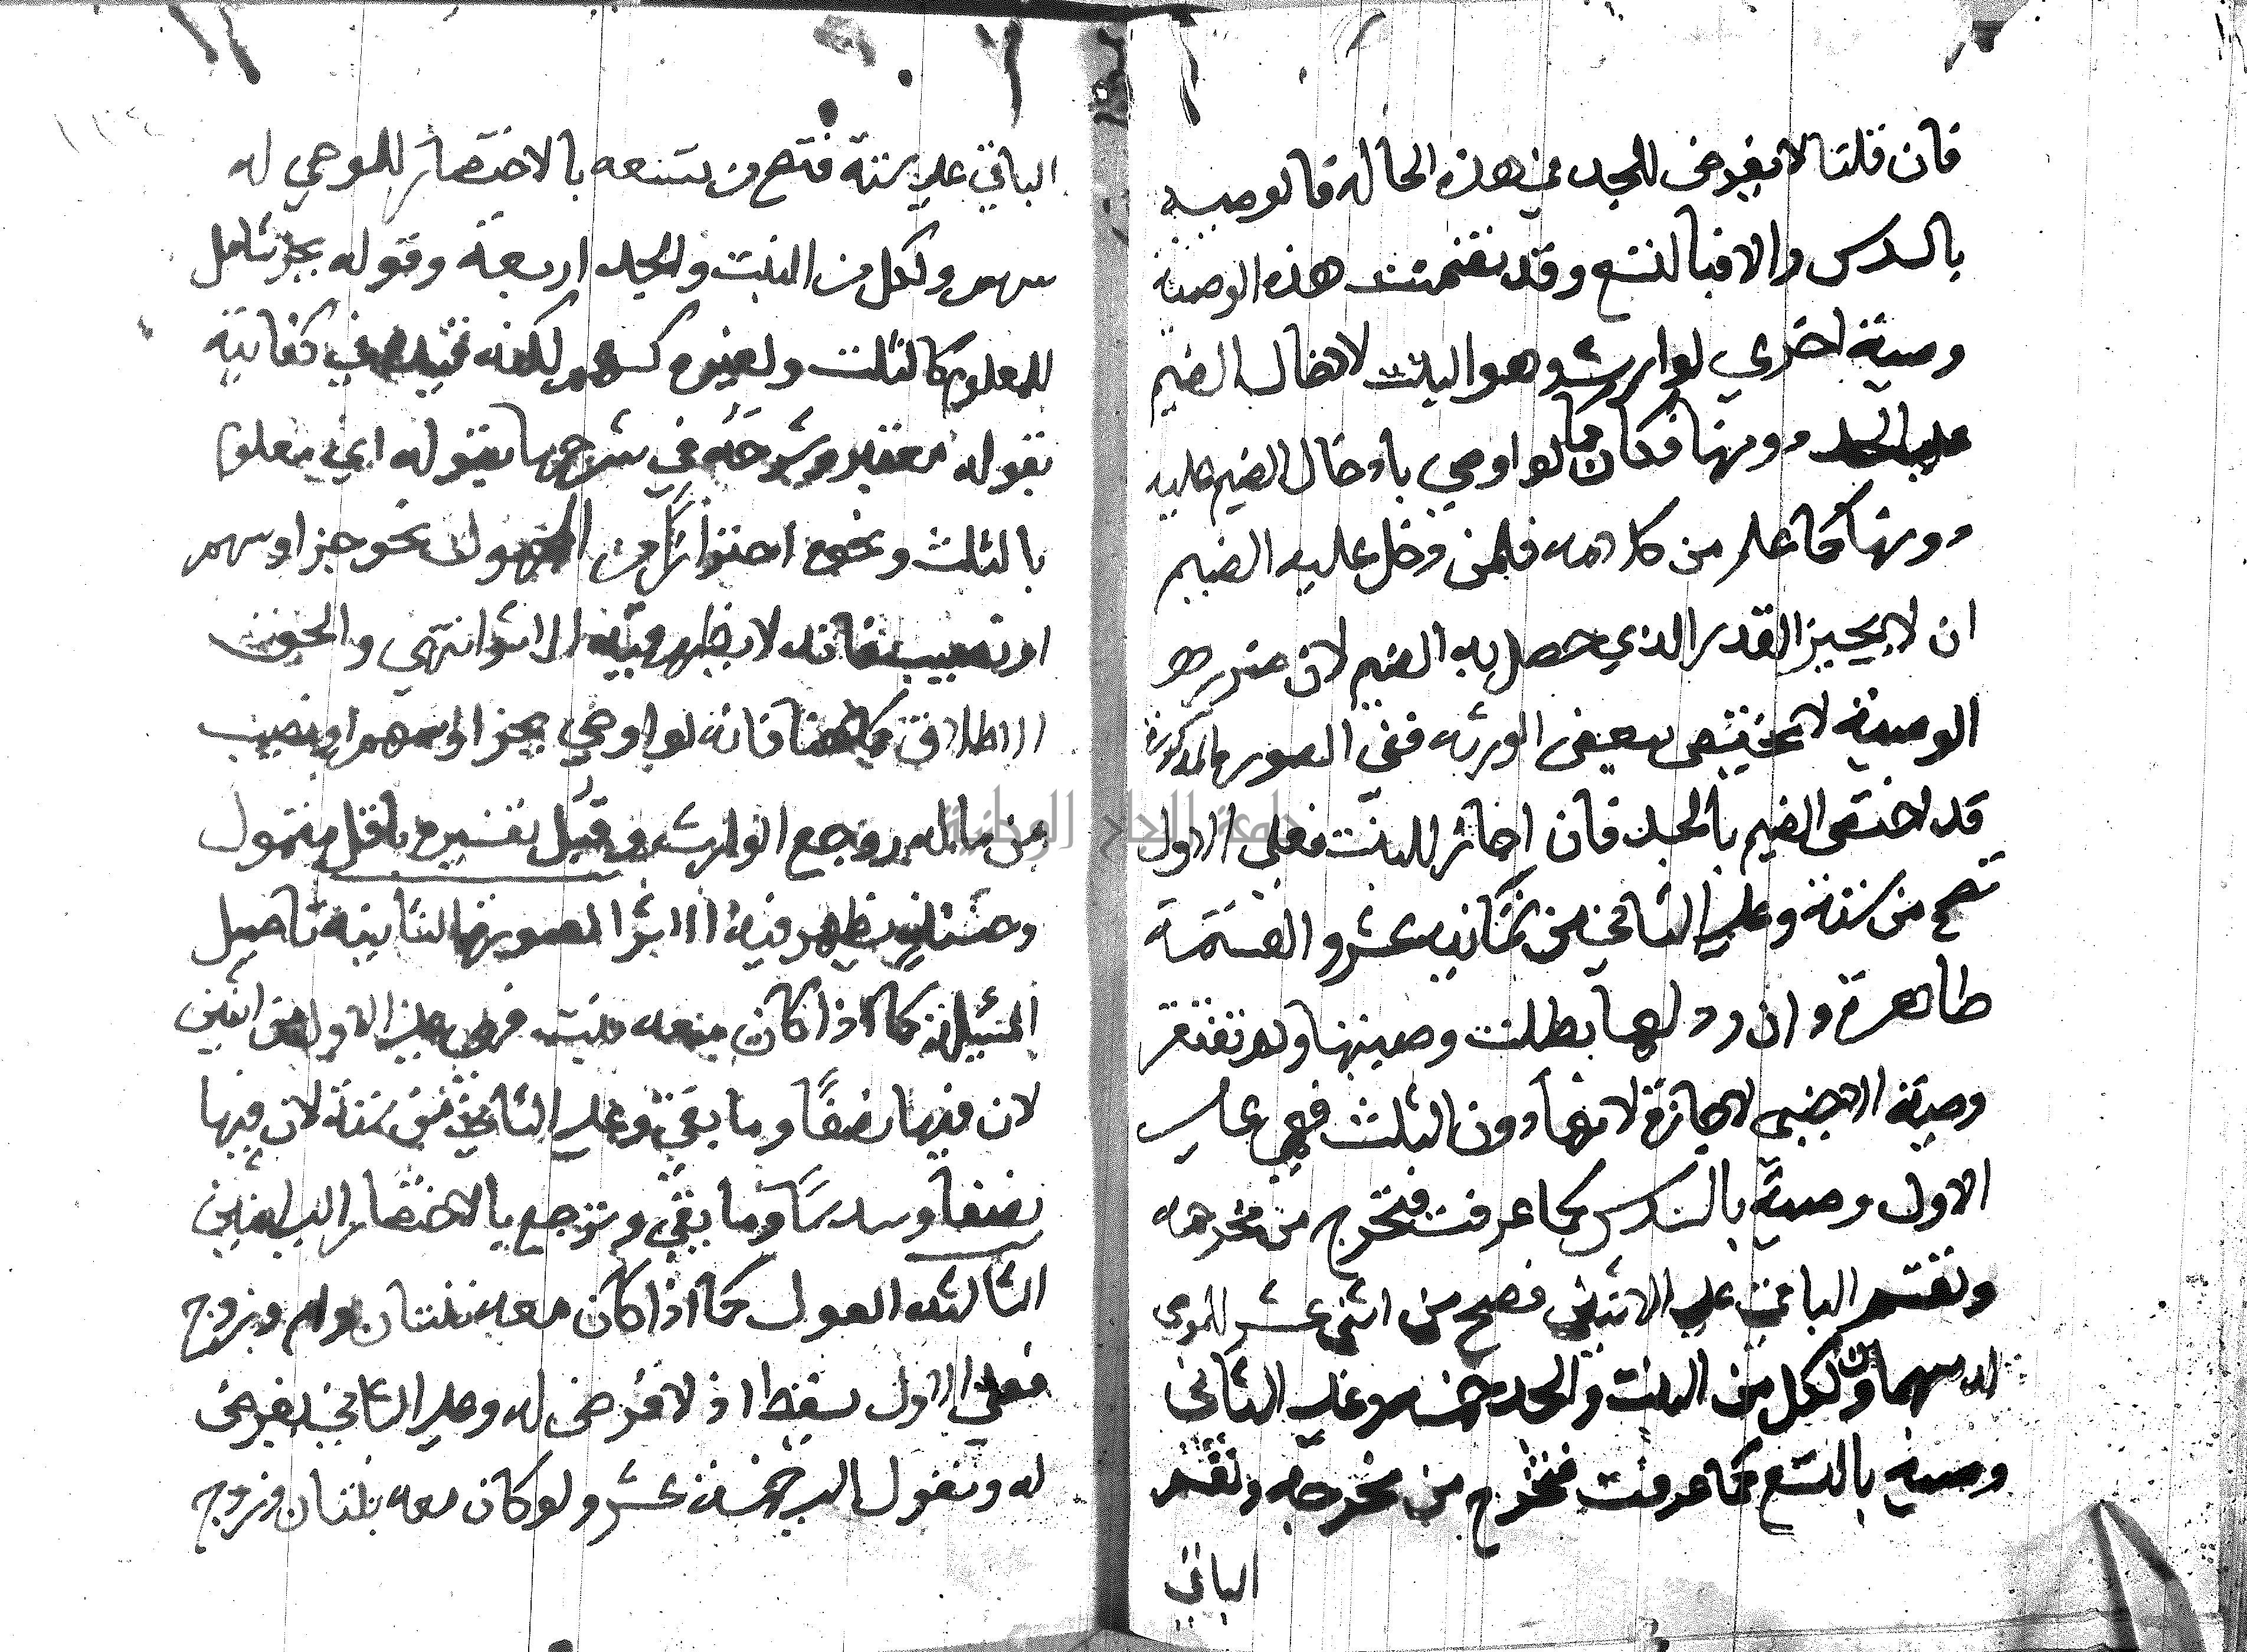 فان قلنا لا يفرض للجد في هذه الحالة فالوصية
بالسدس والا فبالتسع وقد تضمنت هذه الوصية
وصية اخري لوارث وهو البنت لادخال الضيم
علي الجد دونها فكان كما لو اوصي بادخال الضيم عليه
دونها كما علم من كلامه فلمن دخل عليه الضيم
ان لا يجيز القدر الذي حصل به الضيم لان
الوصية لا تختص ببعض الورثة ففي الصورة المذكورة
قد اختص الضيم بالجد فان اجاز للبنت فعلي الاول
تصح من ستة وعلي الثاني من ثمانية عشر والقسمة
ظاهرة وان رد لها بطلت وصيتها ولم تفتقر
وصية الاجنبي لاجازة لانها دون الثلث فهي علي
الاول وصية بالسدس كما عرفت فتخرج من مخرجه
وتقسم الباقي علي الاثنين فتصح من اثني عشر للموصي
له سهمان ولكل من البنت والجد خمسة وعلي الثاني
وصية بالتسع كما عرفت فتخرج من مخرجه وتقسم
الباقي
الباقي علي ستة فتصح من تسعة بالاختصار للموصي له
سهم ولكل من البنت والجد اربعة وقوله بجزء شامل
للمعلوم كالثلث ولغيره كسهم لكنه قيده في كفايته
بقوله معتبر وشرحه في شرحها بقوله اي معلوم
بالثلث ونحوه احترازا من المجهول نحو جزء او سهم
او نصيب فانه لا يظهر فيه الاثر انتهي والحق
الاطلاق كما هنا فانه لو اوصي بجزء او سهم او نصيب
من ماله روجع الوارث وقبل تفسيره باقل متمول
وحينئذ يظهر فيه الاثر الصورة الثانية تاصيل
المسئلة كما اذا كان معه بنت فرض علي الاول من اثنين
لان فيها نصفا وما بقي وعلي الثاني من ستة لان فيها
نصفا وسدسا وما بقي وترجع بالاختصار الي اثنين
الثالثة العول كما اذا كان معه بنتان وام وزوج
فعلي الاول يسقط اذ لا فرض له وعلي الثاني يفرض
له وتعول الي خمسة عشر ولو كان معه بنتان وزوج